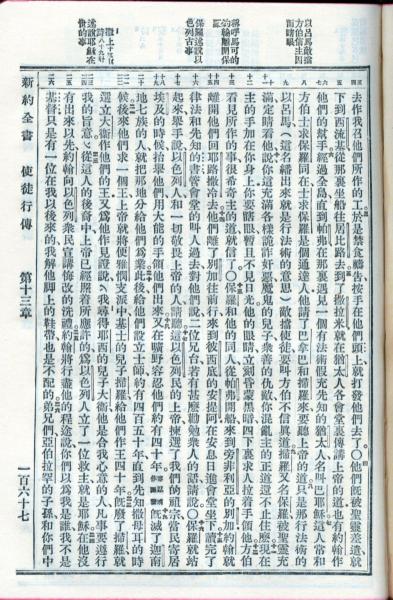 以呂馬敵擋
方伯信主因
而瞎眼
稱呼馬可的
約翰離開保
羅
保羅述說以
色列古事
述說耶穌在
世的事
去作我召他們所作的工於是禁食禱告按手在他們頭上就打發他們去了〇他們既被聖靈差遣就
下到西流基從那裏坐船往居比路去到了撒拉米就在猶太人各會堂裏傳講上帝的道也有約翰作
他們的幫手經過全島直到帕弗在那裏遇見一個有法術假充先知的猶太人名叫巴耶穌這人常和
方伯士求保羅同在士求保羅是個通達人他請了巴拿巴和掃羅來要聽上帝的道只是那行法術的
以呂馬(這名繙出來就是行法術的意思)敵擋使徒要叫方伯不信眞道掃羅又名保羅被聖靈充
滿定睛看他說你這充滿各樣詭詐奸惡魔鬼的兒子衆善的仇敵你混亂主的正道還不止住麼現在
主的手加在你身上你要瞎眼暫且不見日光他的眼睛立刻昏蒙黑暗四下裏求人拉着手領他方伯
看見所作的事很希奇主的道就信了〇保羅和他的同人從帕弗開船來到旁非利亞的別加約翰就
離開他們回耶路撒冷去他們離了別加往前行來到彼西底的安提阿在安息日進會堂坐下讀完了
律法和先知的書管會堂的叫人過去對他們說二位兄台若有甚麼勸勉衆人的話請說〇保羅就站
起來舉手說以色列人和一切敬畏上帝的人請聽這以色列民的上帝揀選了我們的祖宗當民寄居
埃及的時候抬舉他們用大能的手領他們出來又在曠野容忍他們約有四十年容忍或作撫養既滅了迦南
地七族的人就把那地分給他們爲業此後給他們設立士師約有四百五十年直到先知撒母耳的時
候後來他們求一個王上帝就將便雅憫支派中基士的兒子掃羅給他們作王四十年既廢了掃羅就
選立大衛作他們的王又爲他作見證說我尋得耶西的兒子大衛他是合我心意的人凡事要遵行
我的旨意從這人的後裔中上帝已經照着所應許的爲以色列人立了一位救主就是耶穌在他沒
有出來以先約翰向以色列衆民宣講悔改的洗禮約翰將行盡他的程途說你們以爲我是誰我不是
基督只是有一位在我以後來的我解他脚上的鞋帶也是不配的弟兄們亞伯拉罕的子孫和你們中
新約全書 使徒行傳 第十三章 一百六十七